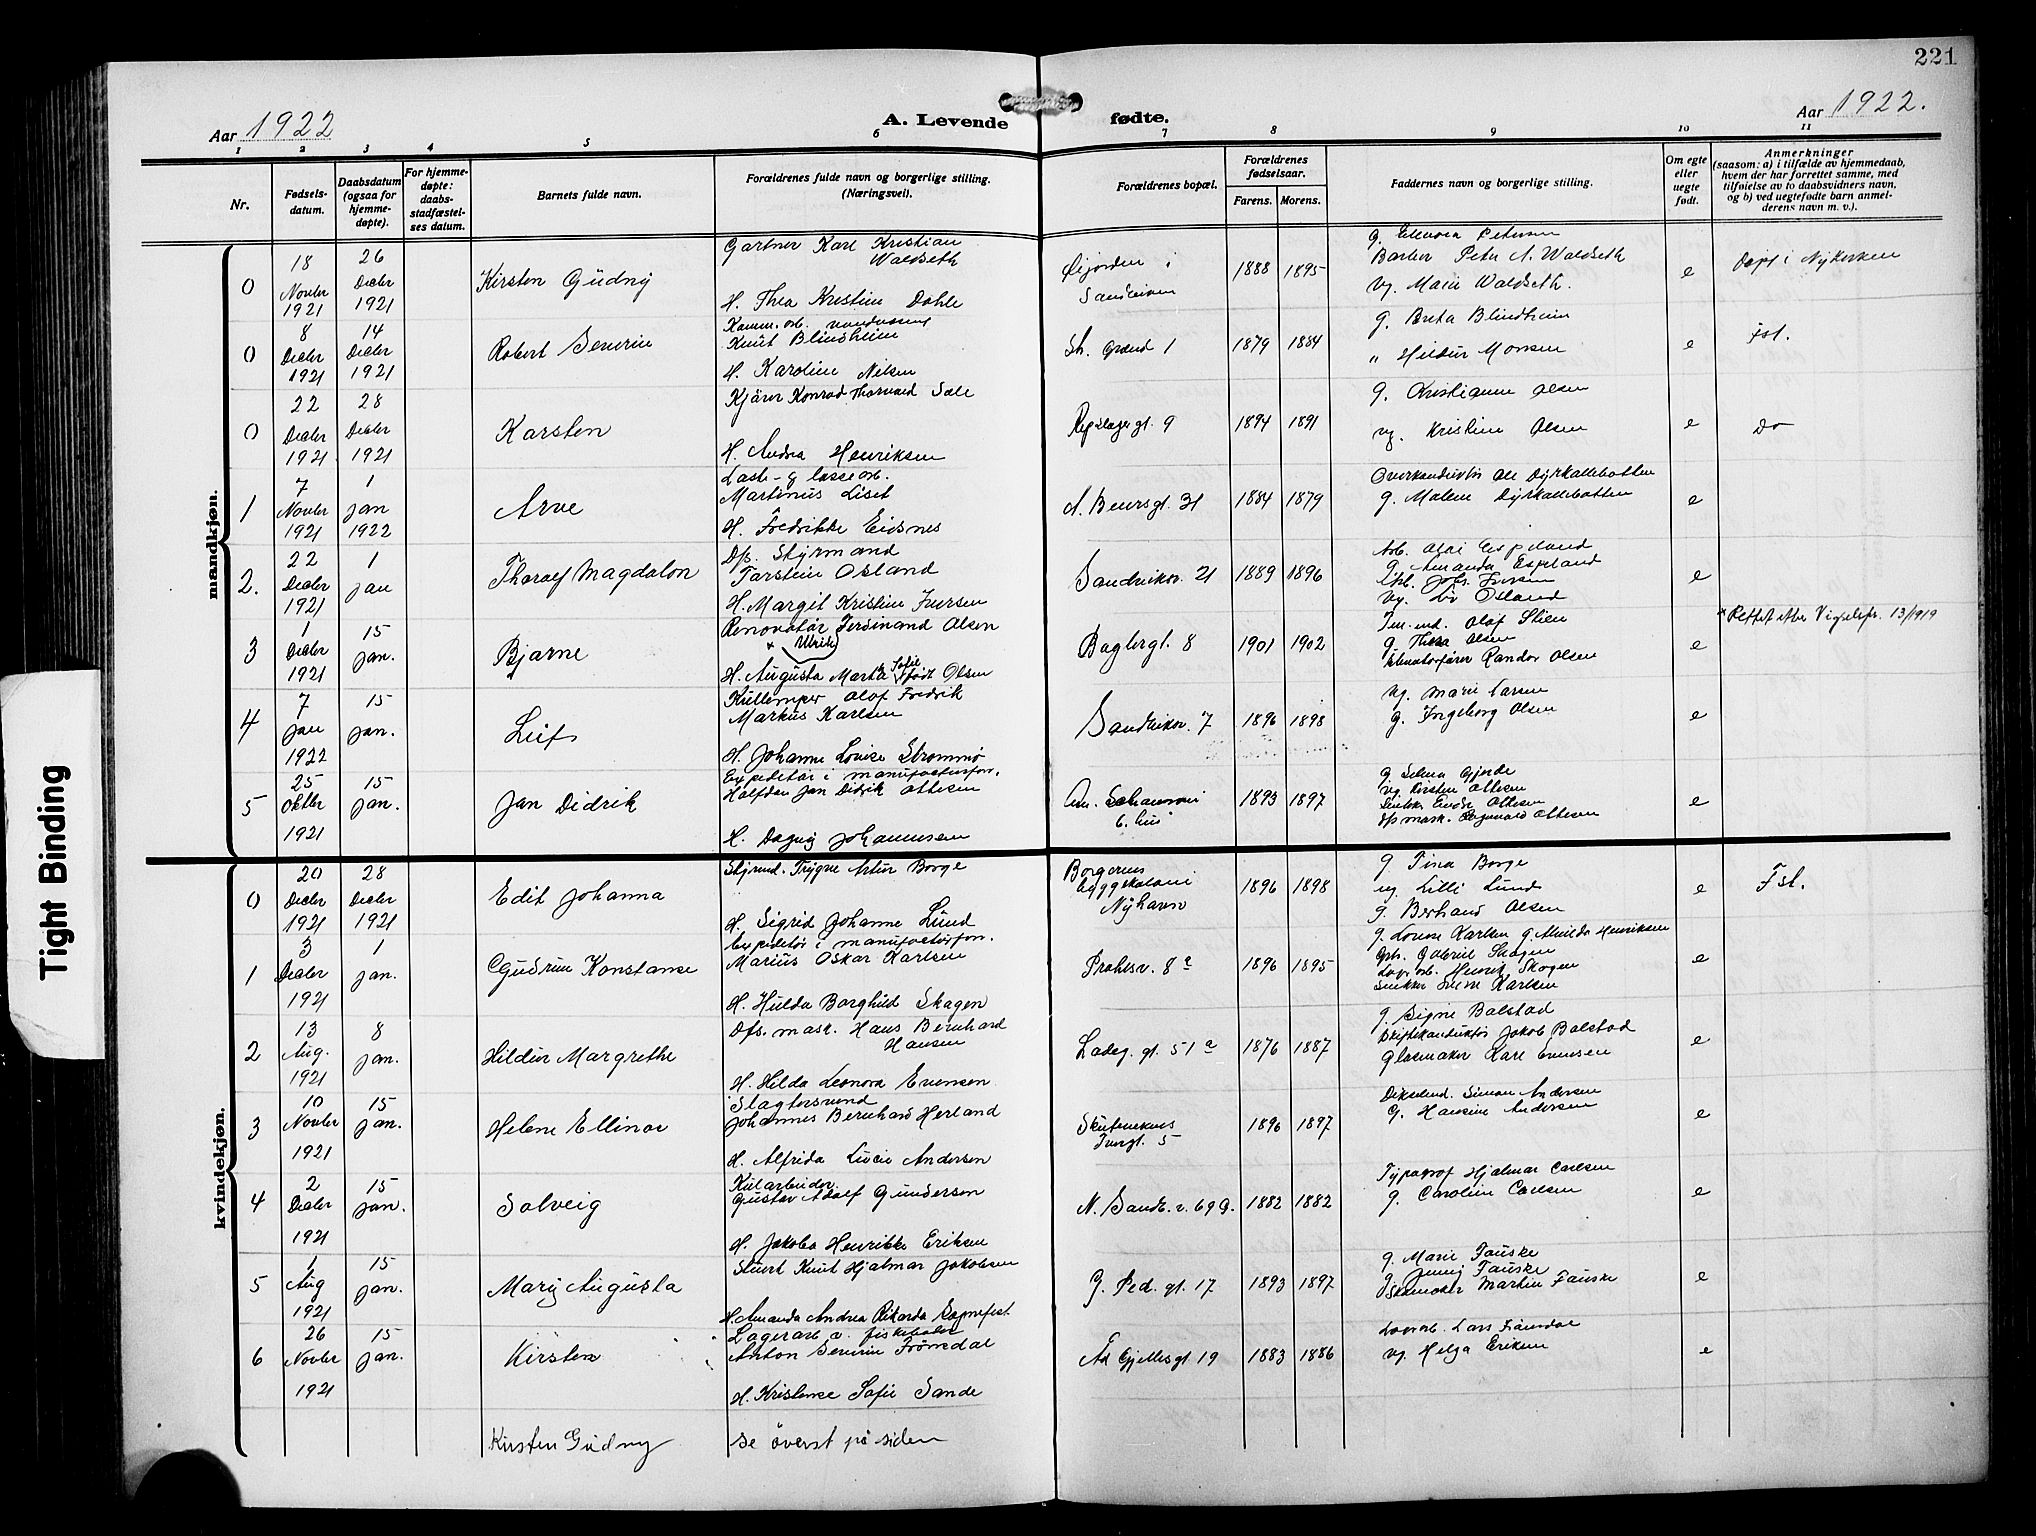 221
Aar 1922
A. Levende
fødte.
Aar 1922.
1 2 3 4 5 6 7 8 9 10 11
Nr.
Fødsels-
datum.
Daabsdatum
(ogsaa for
hjemme-
døpte).
For hjemme-
døpte:
daabs-
stadfæstel-
ses datum.
Barnets fulde navn.
Forældrenes fulde navn og borgerlige stilling.
(Næringsvei).
Forældrenes bopæl.
Forældrenes
fødselsaar.
Farens. Morens.
Faddernes navn og borgerlige stilling.
Om egte
eller
uegte
født.
Anmerkninger
(saasom: a) i tilfælde av hjemmedaab,
hvem der har forrettet samme, med
tilføielse av to daabsvidners navn,
og b) ved uegtefødte barn anmel-
derens navn m. v.).
mandkjøn.
0
18
Novbr
1921
26
Decbr
1921
Kirsten Gudny
Gartner Karl Kristian
Waldseth
H. Thea Kristine Dahle
i
Sandviken
1888 1895
g. Petersen
Barber Peter A. Waldseth
Vg. Marie Waldseth.
e
Døpt i Nykirken
0
8
Decbr
1921
14
Decbr
1921
Robert Severin
Knut Blindheim
H. Karoline Nilsen
St. Grænd 1
1879 1884
g. Berta Blindheim
" Hildur Monsen
e
Fst.
0
22
Decbr
1921
28
Decbr
1921
Karsten
Kjører Konrad Thorvald Sæle
H. Andrea Henriksen
Repslagergt. 9
1894 1891
g. Kristianne Olsen
vg. Kristine Olsen
e
Do
1
7
Novbr
1921
1
jan
1922
Arve
Laste- og lossearb.
Martinus Liset
H. Fredrikke Eidsnes
A. Beuersgt. 31
1884 1879
Overkonduktør Ole Dyrkollebotten
g. Malene Dyrkollebotten
e
2.
22
Decbr
1921
1
jan
Tharalf Magdalon
Dps. Styrmand
Torstein Osland
H. Margit Kristine Iversen
Sandviksv. 21
1889 1896
Arb. Olai Espeland
g. Amanda Espeland
Joh. Iversen
Vg. Liv Osland
e
3
1
Decbr
1921
15
jan.
Bjarne
Renovatør Ferdinand Olsen
x Ulrikke
H. Augusta Marta Sofie født Olsen
Baglergt. 8
1901 1902
Olaf Stien
g. Thea Olsen
Elevatorfører Randor Olsen
e
x Rettet efter Vigselspr. 13/1919
4
7
jan
1922
15
jan.
Leif
Kullemper Olaf Fredrik
Markus Karlsen
H. Johanne Lovise Strømmø
Sandviksv. 7
1896 1898
Vg. Marie Larsen
g. Ingeborg Olsen
e
5
25
Oktbr
1921
15
jan.
Jan Didrik
Expeditør i manufacturfor.
Halfdan Jan Didrik Ottesen
H. Dagny Johannesen
6. hus
1893 1897
g. Selma Gjerde
vg. Kirsten Ottesen
Ottesen
Dps mask. Ragnvald Ottesen
e
kvindekjøn.
0
20
Decbr
1921
28
Decbr
1921
Edit Johanna
Styrmd. Trygve Artur Borge
H. Sigrid Johanne Lund
Borgernes
byggekoloni
Nyhavn
1896 1898
g Tina Borge
ug. Lilli Lund
g. Berhard Olsen
e
Fst.
1
3
Decbr
1921
1
jan.
Gudrun Konstanse
Expeditør i manufacturfor.
Marius Oskar Karlsen
H. Hulda Borghild Skagen
Prahlsv. 8a
1896 1895
g. Lovise Karlsen g. Alvilda Henriksen
Gabriel Skagen
Henrik Skagen
Snekker Karlsen
e
2
13
Aug.
1921
8
jan.
Hildur Margrethe
Dps. mask. Hans Bernhard
Hansen
H. Hilda Leonora Evensen
Ladeg. gt. 51a
1876 1887
g. Signe Bolstad
Driftskonduktør Jakob Bolstad
Glasmaker Karl Evensen
e
3
10
Novbr
1921
15
jan.
Helene Ellinor
Slagtersvend
Johannes Bernhard Herland
H. Alfrida Lucie Andersen
Skuteviks
5
1896 1897
Simon Andersen
G. Hansine Andersen
e
4
2
Decbr
1921
15
jan.
Solveig
Kularbeider.
Gustav Adolf Gundersen
H. Jakoba Henrikke Eriksen
N. Sandv. v. 69 a.
1882 1882
Typograf Hjalmar Carlsen
g. Caroline Carlsen
e
5
1
Aug
1921
15
jan.
Mary Augusta
Stuert Knut Hjalmar Jakobsen
H. Amanda Andrea Rikarda Sognefest
G. Ped. gt. 17
1893 1897
g. Marie Fauske
g Jenny Fauske
Skomaker Martin Fauske
e
6
26
Novbr
1921
15
jan.
Kirsten
Lagerarb.
Anton Severin Frømdal
H. Kristense Sofie Sande
Ad Gjellesgt. 19
1883 1886
Lars Frømdal
vg. Helga Eriksen
e
Kirsten Gudny se øverst på siden
Tight Binding